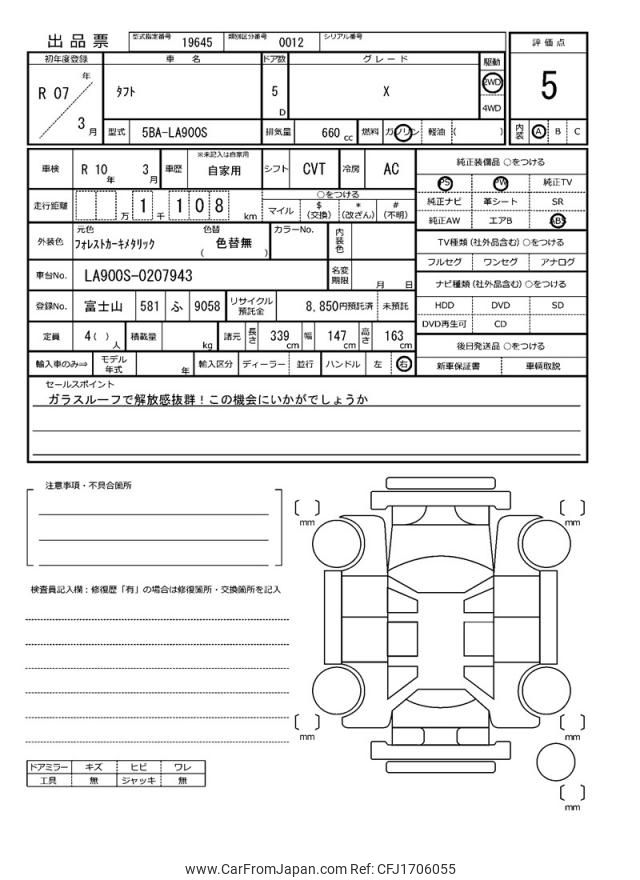 出品票
型式指定番号 19645 類別区分番号 0012 シリアル番号
評価点
5
内装 A B C
初年度登録 車名 ドア数 グレード 駆動
R 07 年 3 月
タフト
5 D
X
2WD
4WD
型式 5BA-LA900S 排気量 660 cc 燃料 ガソリン 軽油 ( )
車検 R 10 年 3 月 車歴 ※未記入は自家用 自家用 シフト CVT 冷房 AC
走行距離 万 1 千 1 0 8 km
○をつける
マイル $ (交換) * (改ざん) # (不明)
外装色 元色 フォレストカーキメタリック 色替 ( 色替無 ) カラーNo. 内装色
車台No. LA900S-0207943 名変期限 月 日
登録No. 富士山 581 ふ 9058 リサイクル預託金 8,850円預託済 未預託
定員 4( ) 人 積載量 kg 諸元 長さ 339 cm 幅 147 cm 高さ 163 cm
輸入車のみ⇒ モデル年式 年 輸入区分 ディーラー 並行 ハンドル 左 右
純正装備品 ○をつける
PS PW 純正TV
純正ナビ 革シート SR
純正AW エアB ABS
TV種類(社外品含む) ○をつける
フルセグ ワンセグ アナログ
ナビ種類(社外品含む) ○をつける
HDD DVD SD
DVD再生可 CD
後日発送品 ○をつける
新車保証書 車輌取説
セールスポイント
ガラスルーフで解放感抜群！この機会にいかがでしょうか
注意事項・不具合箇所
検査員記入欄：修復歴「有」の場合は修復箇所・交換箇所を記入
ドアミラー キズ ヒビ ワレ
工具 無 ジャッキ 無
[ ] mm
[ ] mm
[ ] mm
[ ] mm
[ ] mm
www.CarFromJapan.com Ref: CFJ1706055